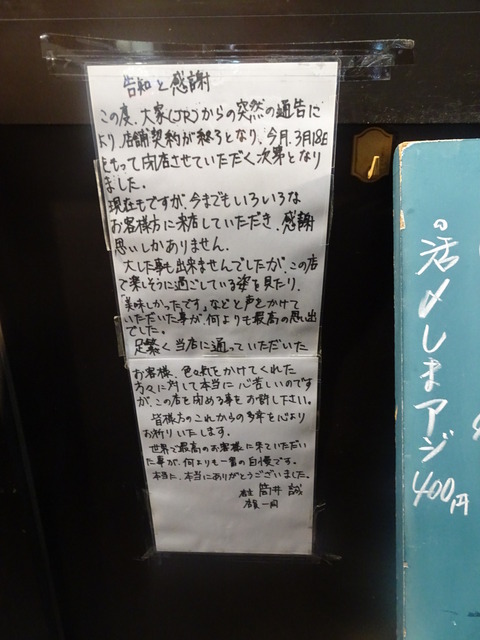 告知と感謝
この度、大家(JR)からの突然の通告に
より、店舗契約が終了となり、今月、3月18日
をもって閉店させていただく次第となり
ました。
現在もですが、今までもいろいろな
お客様方に来店していただき、感謝
思いしかありません。
大した事も出来ませんでしたが、この店
で楽しそうに過ごしている姿を見たり、
「美味しかったです」などと声をかけて
いただいた事が、何よりも最高の思い出
でした。
足繁く当店に通っていただいた
お客様、色々気をかけてくれた
方々に対して本当に心苦しいのです
が、この店を閉める事をお許し下さい。
皆様方のこれからの多幸を心より
お祈りいたします。
世界で最高のお客様に来ていただい
た事が、何よりも一番の自慢です。
本当に、本当にありがとうございました。
店主 筒井 誠
店員一同
の活〆しまアジ
400円